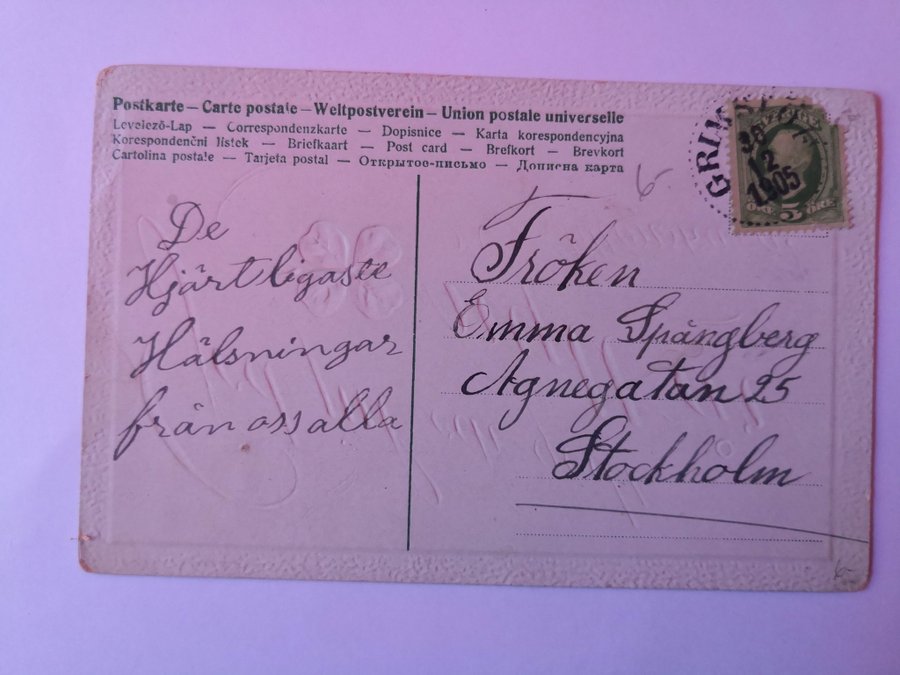 Postkarte – Carte postale – Weltpostverein – Union postale universelle
Levelező-Lap — Correspondenzkarte — Dopisnice — Karta korespondencyjna
Korespondenční lístek — Briefkaart — Post card — Brefkort — Brevkort
Cartolina postale — Tarjeta postal — Открытое-письмо — Дописна карта
De
Hjärtligaste
Hälsningar
från oss alla
6-
Fröken
Emma Spångberg
Agnegatan 25
Stockholm
6-
12
1905
5